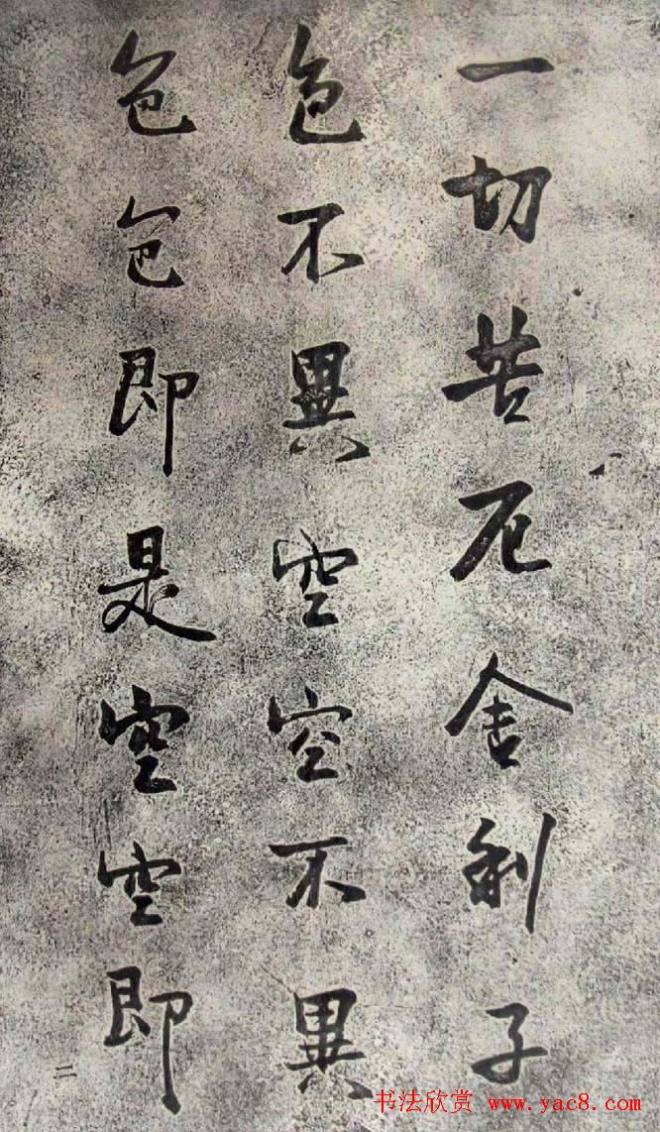 一切苦厄舍利子
色不異空空不異
色色即是空空即
二
书法欣赏 www.yac8.com